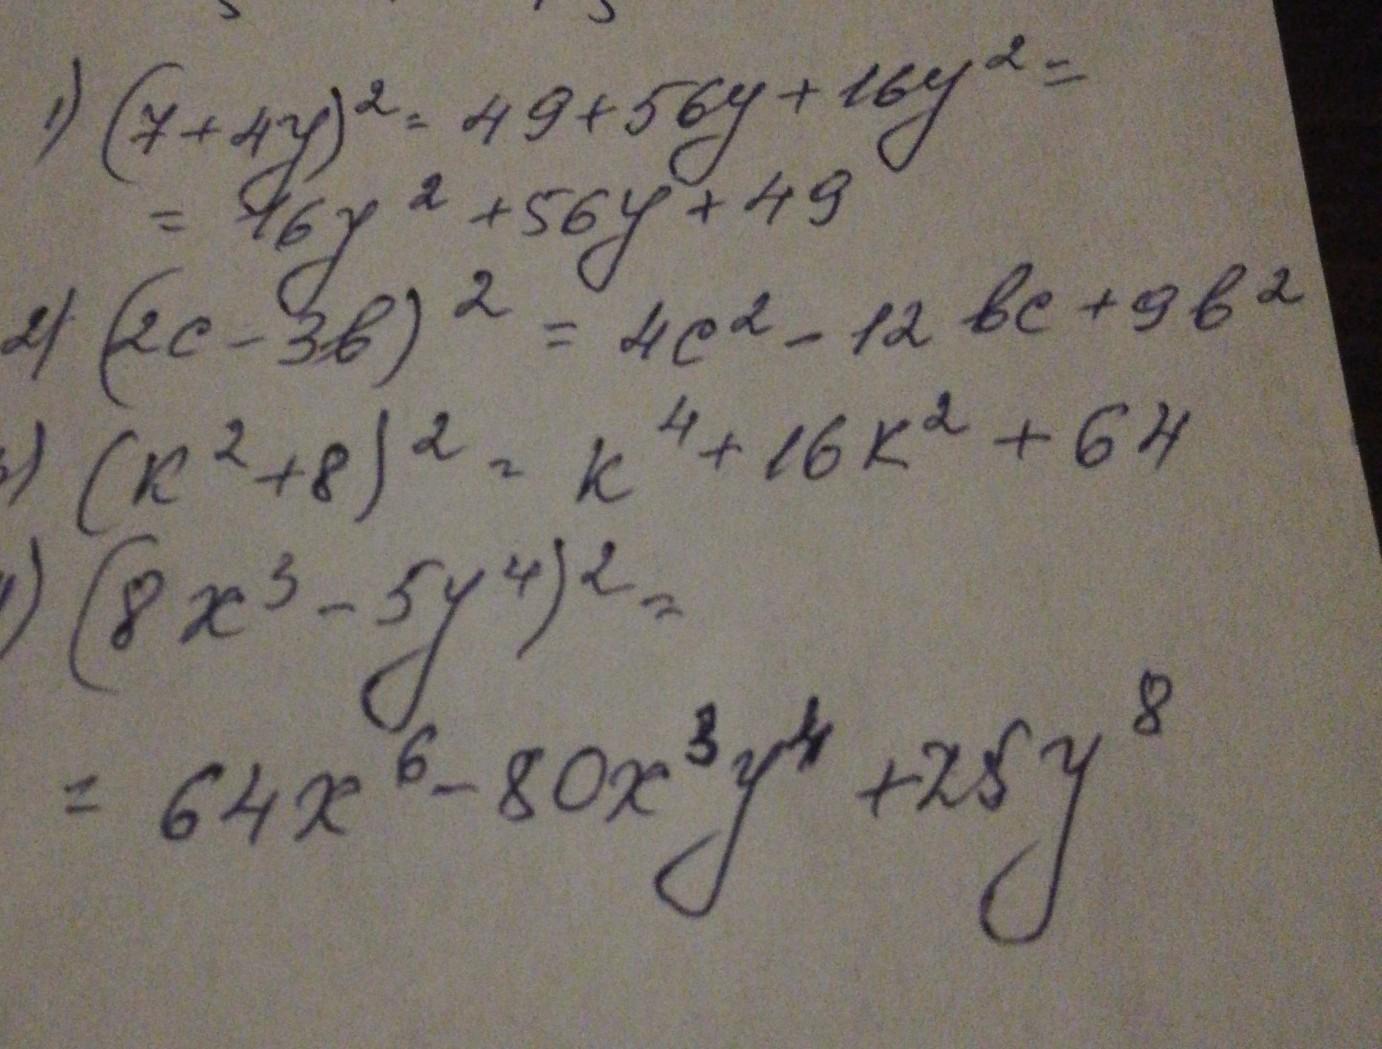 1) (7+4y)² = 49+56y+16y² =
= 16y² +56y+49
2) (2c-3b)² = 4c² - 12 bc +9b²
3) (k²+8)² = k⁴+16k² +64
4) (8x³-5y⁴)² =
= 64x⁶-80x³y⁴ +25y⁸